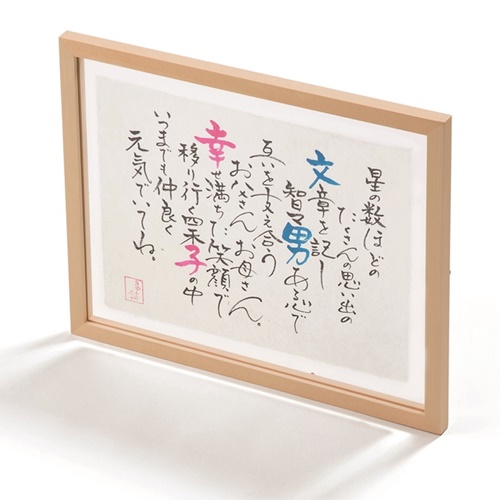 星の数ほどの
たくさんの思い出の
文章を記し
智ある男ある心で
互いを支え合う
お父さん お母さん。
幸せ満ちた笑顔で
移り行く四季子の中
いつまでも仲良く
元気でいてね。